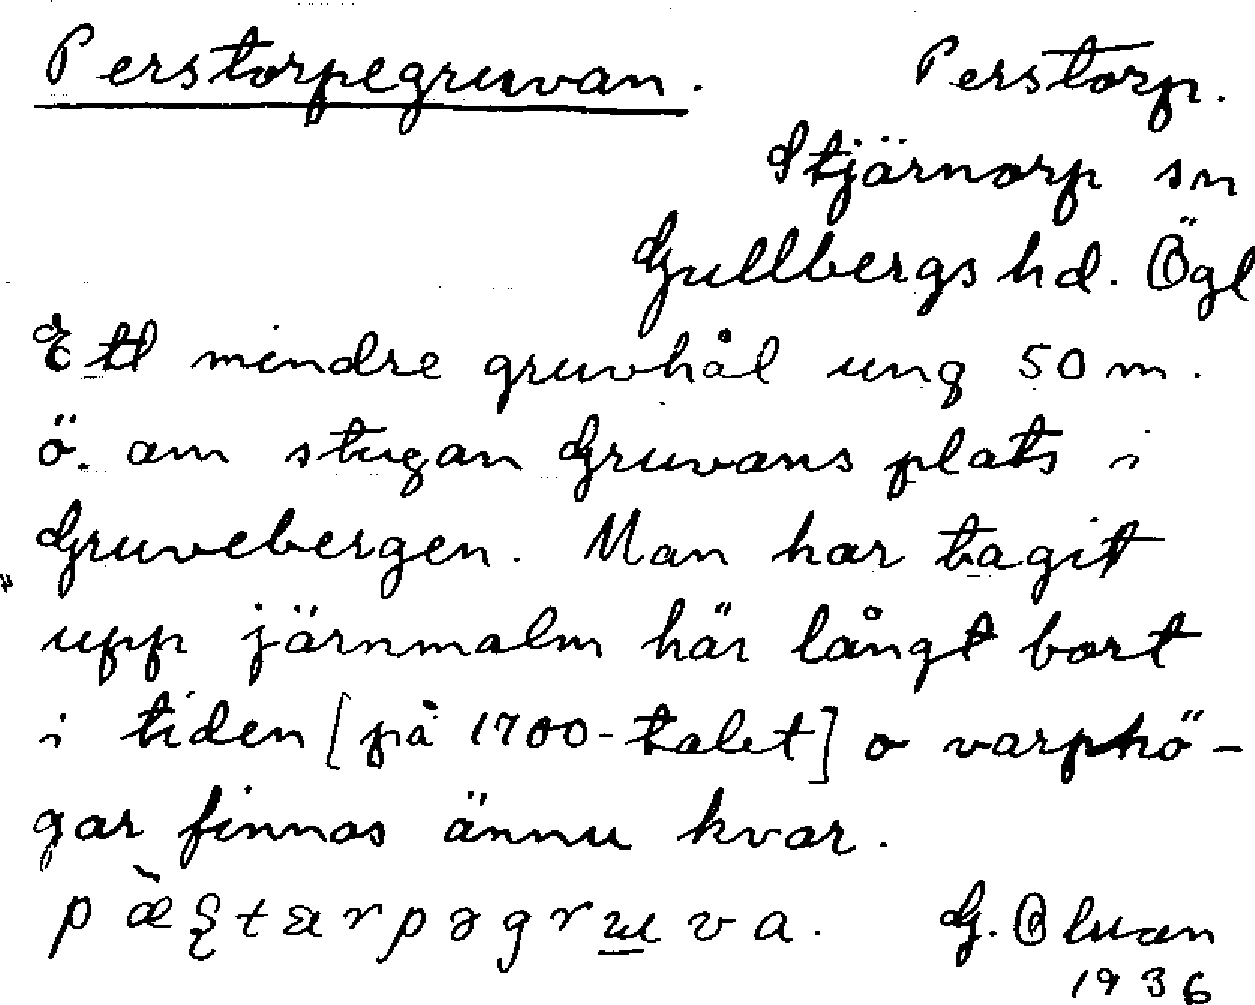 Perstorpegruvan. Perstorp.
Stjärnorp sn
Gullbergs hd. Ögl
Ett mindre gruvhål ung 50 m.
ö. om stugan Gruvans plats i
Gruvebergen. Man har tagit
upp järnmalm här långt bort
i tiden [på 1700-talet] o varphö-
gar finnas ännu kvar.
G.
1936